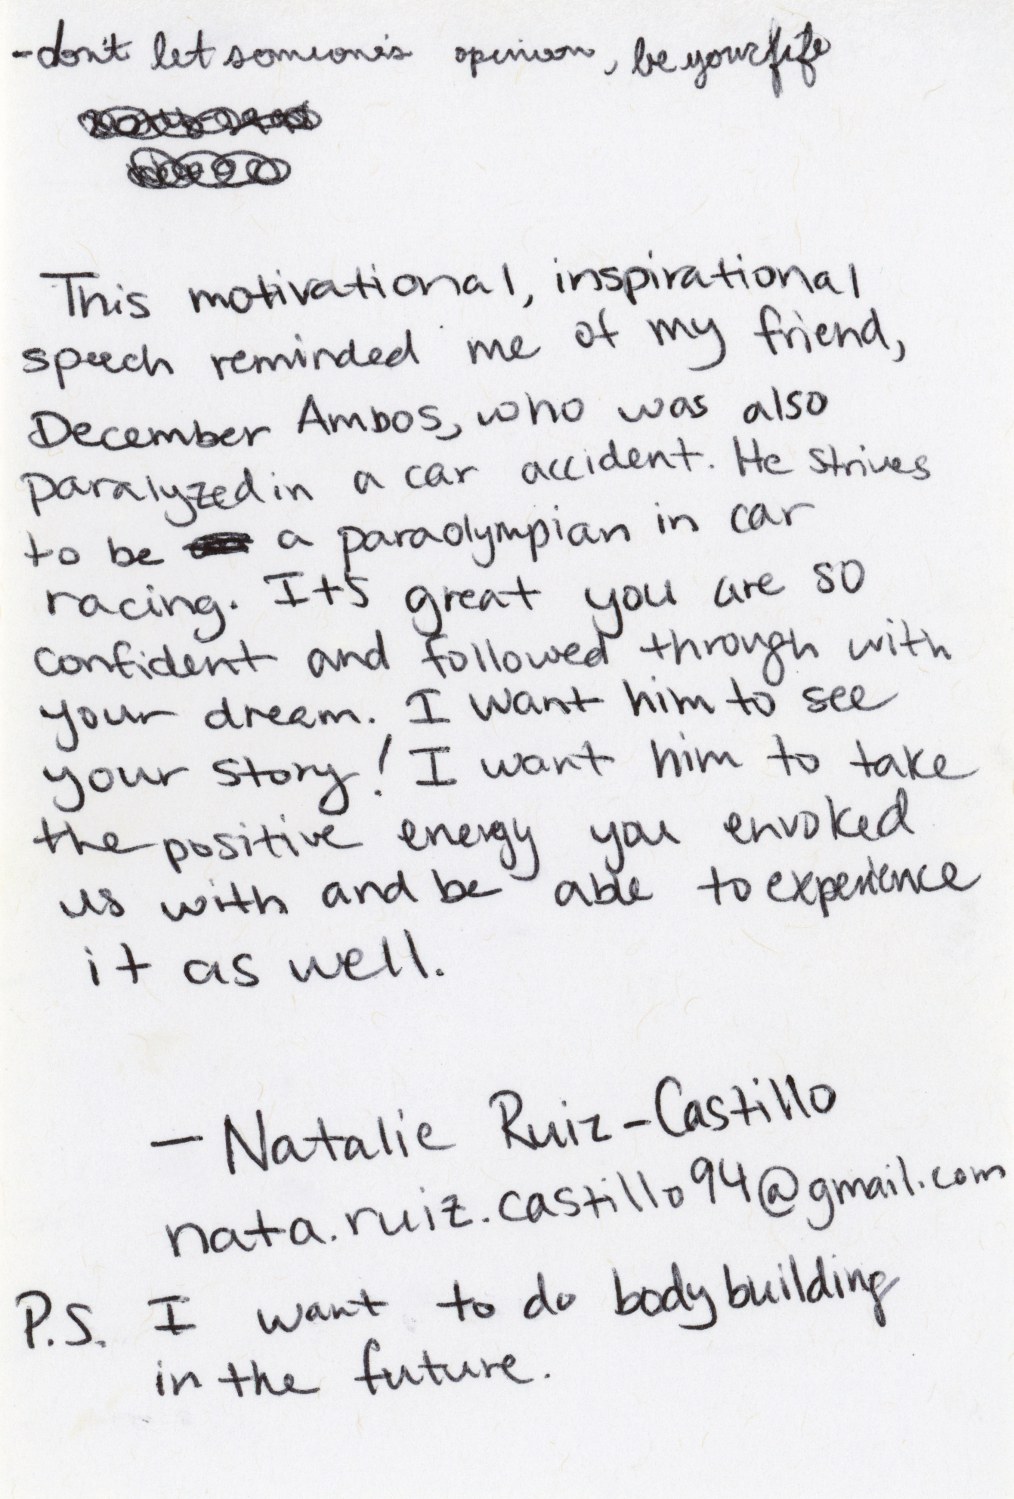 -don't let someone's opinion, be your life
This motivational, inspirational
speech reminded me of my friend,
December Ambos, who was also
paralyzed in a car accident. He strives
to be a paraolympian in car
racing. Its great you are so
confident and followed through with
your dream. I want him to see
your story! I want him to take
the positive energy you envoked
us with and be able to experience
it as well.
— Natalie Ruiz-Castillo
nata.ruiz.castillo94@gmail.com
P.S. I want to do body building
in the future.